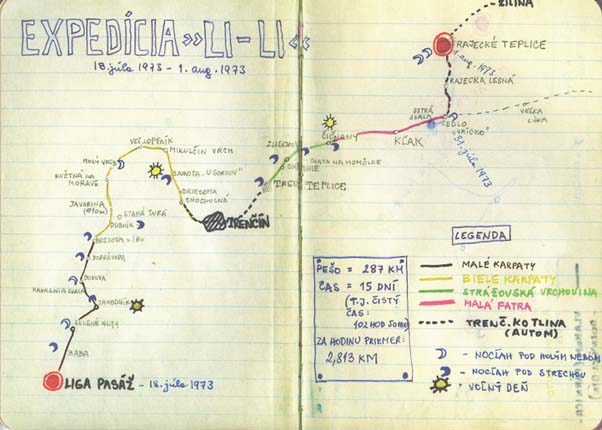 EXPEDÍCIA »LI-LI«
18. júla 1973 - 1. aug. 1973
ŽILINA
RAJECKÉ TEPLICE
1. aug. 1973
RAJECKÁ LESNÁ
OSTRÁ SKALA
VEĽKÁ LÚKA
SEDLO
31. júla 1973
KĽAK
ČIČMANY
CHATA NA HOMÔLKE
TEPLICE
TRENČÍN
VEĽ. LOPENÍK
MIKULČIN VRCH
HOLÝ VRCH
KVĚTNÁ NA MORAVE
SAMOTA „U GORKOV"
DRIETOMA
CHOCHOLNÁ
JAVORINA
STARÁ TURÁ
DUBNÍK
BREZOVÁ
DOBRÁ VODA
BUKOVÁ
ZÁHODNÍK
ZELENÉ HUTY
BABA
LIGA PASÁŽ - 18. júla 1973
LEGENDA
MALÉ KARPATY
BIELE KARPATY
STRÁŽOVSKÁ VRCHOVINA
MALÁ FATRA
TRENČ. KOTLINA
(AUTOM)
- NOCĽAH POD HOLÝM NEBOM
- NOCĽAH POD STRECHOU
- VOĽNÝ DEŇ
PEŠO = 287 KM
ČAS = 15 DNÍ
(T.J. ČISTÝ
ČAS:
102 HOD 50 MIN)
ZA HODINU PRIEMER:
2,813 KM